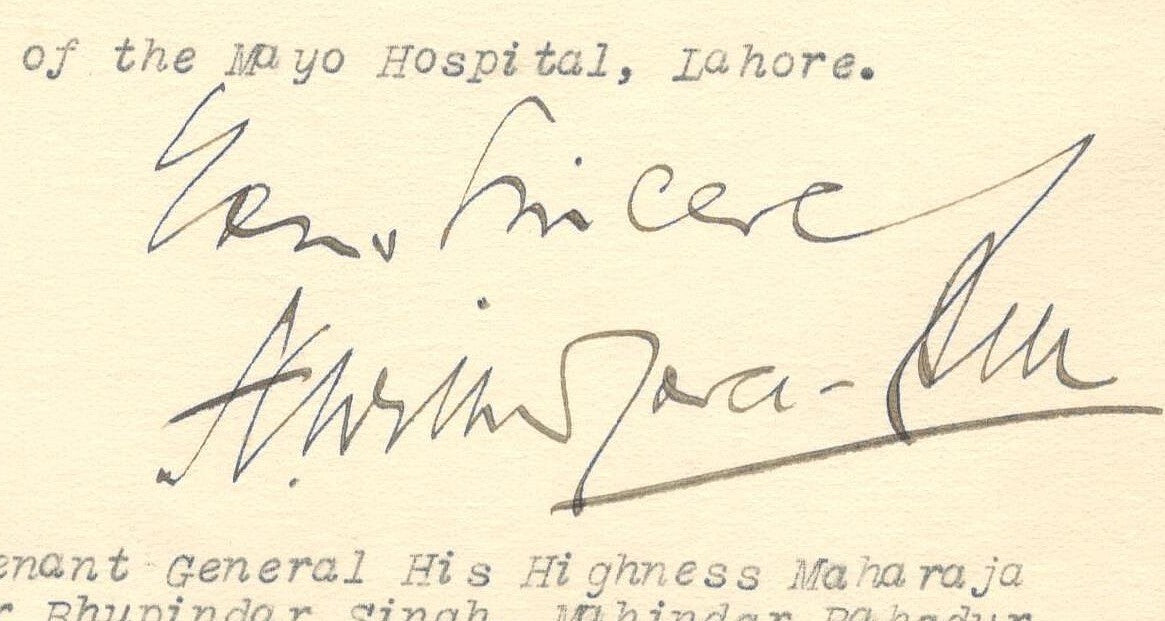 of the Mayo Hospital, Lahore.
Yours Sincerely
enant General His Highness Maharaja
r Bhupindar Singh, Mahindar Bahadur